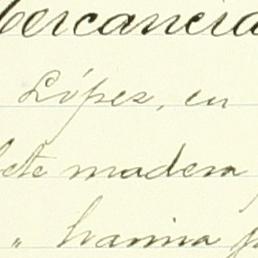 Mercancía
López, en
madera
" harina